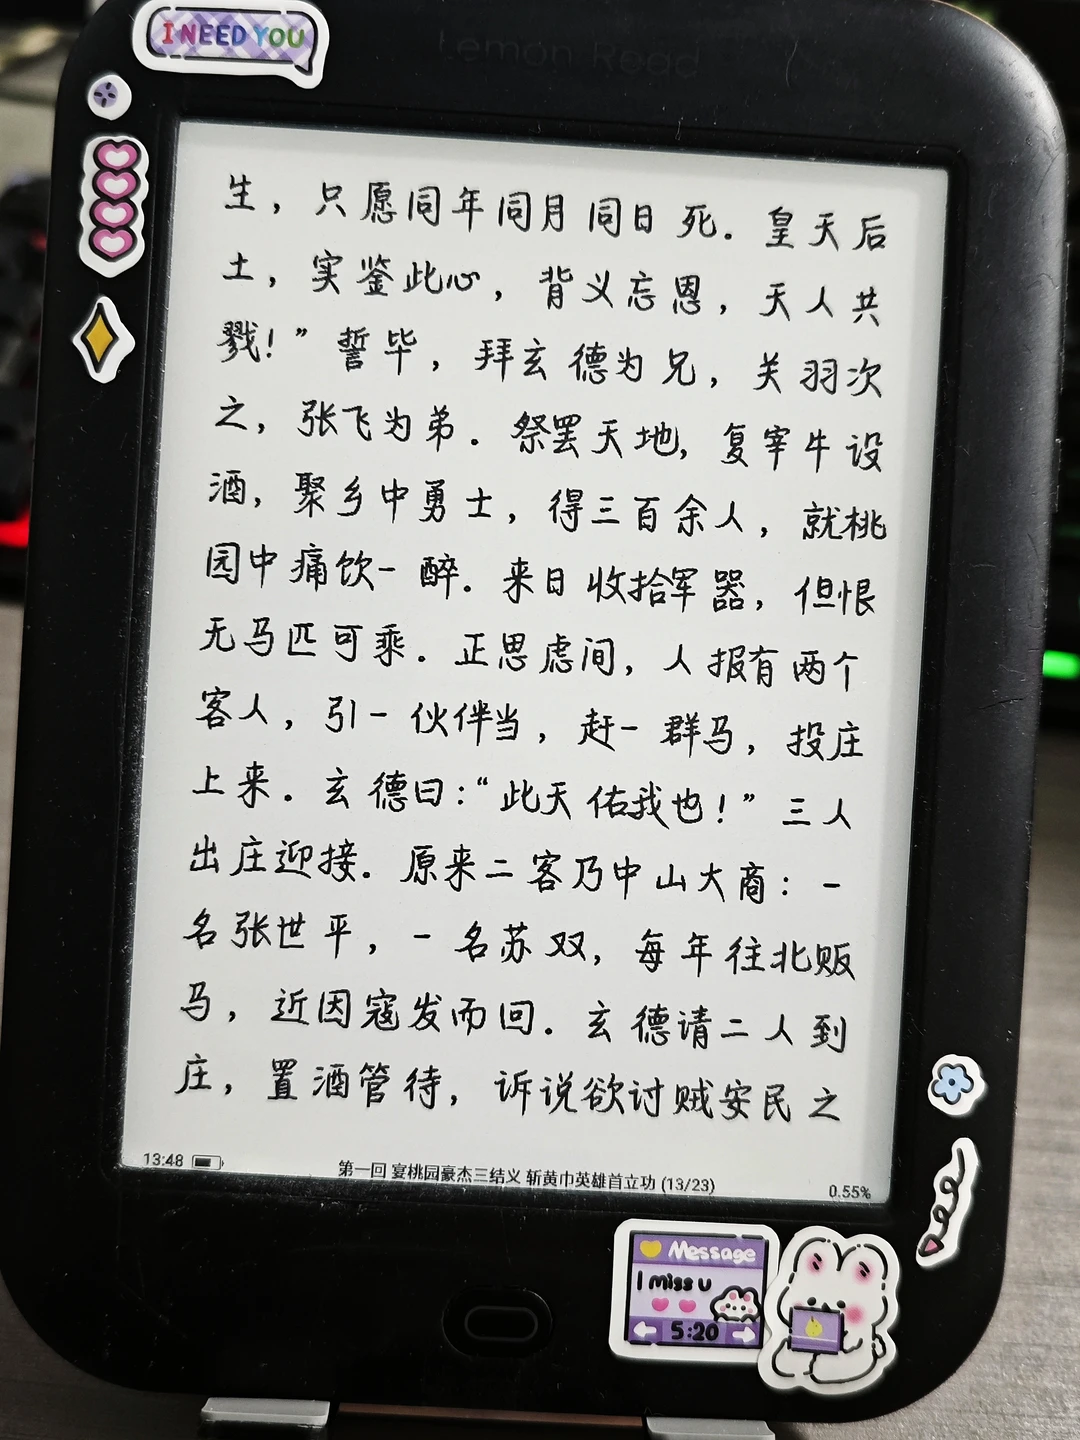 I NEED YOU
Lemon Read
生，只愿同年同月同日死．皇天后
土，实鉴此心，背义忘恩，天人共
戮！”誓毕，拜玄德为兄，关羽次
之，张飞为弟．祭罢天地，复宰牛设
酒，聚乡中勇士，得三百余人，就桃
园中痛饮一醉．来日收拾军器，但恨
无马匹可乘．正思虑间，人报有两个
客人，引一伙伴当，赶一群马，投庄
上来．玄德曰：“此天佑我也！”三人
出庄迎接．原来二客乃中山大商：一
名张世平，一名苏双，每年往北贩
马，近因寇发而回．玄德请二人到
庄，置酒管待，诉说欲讨贼安民之
13:48 第一回 宴桃园豪杰三结义 斩黄巾英雄首立功 (13/23) 0.55%
Message
I miss u
5:20